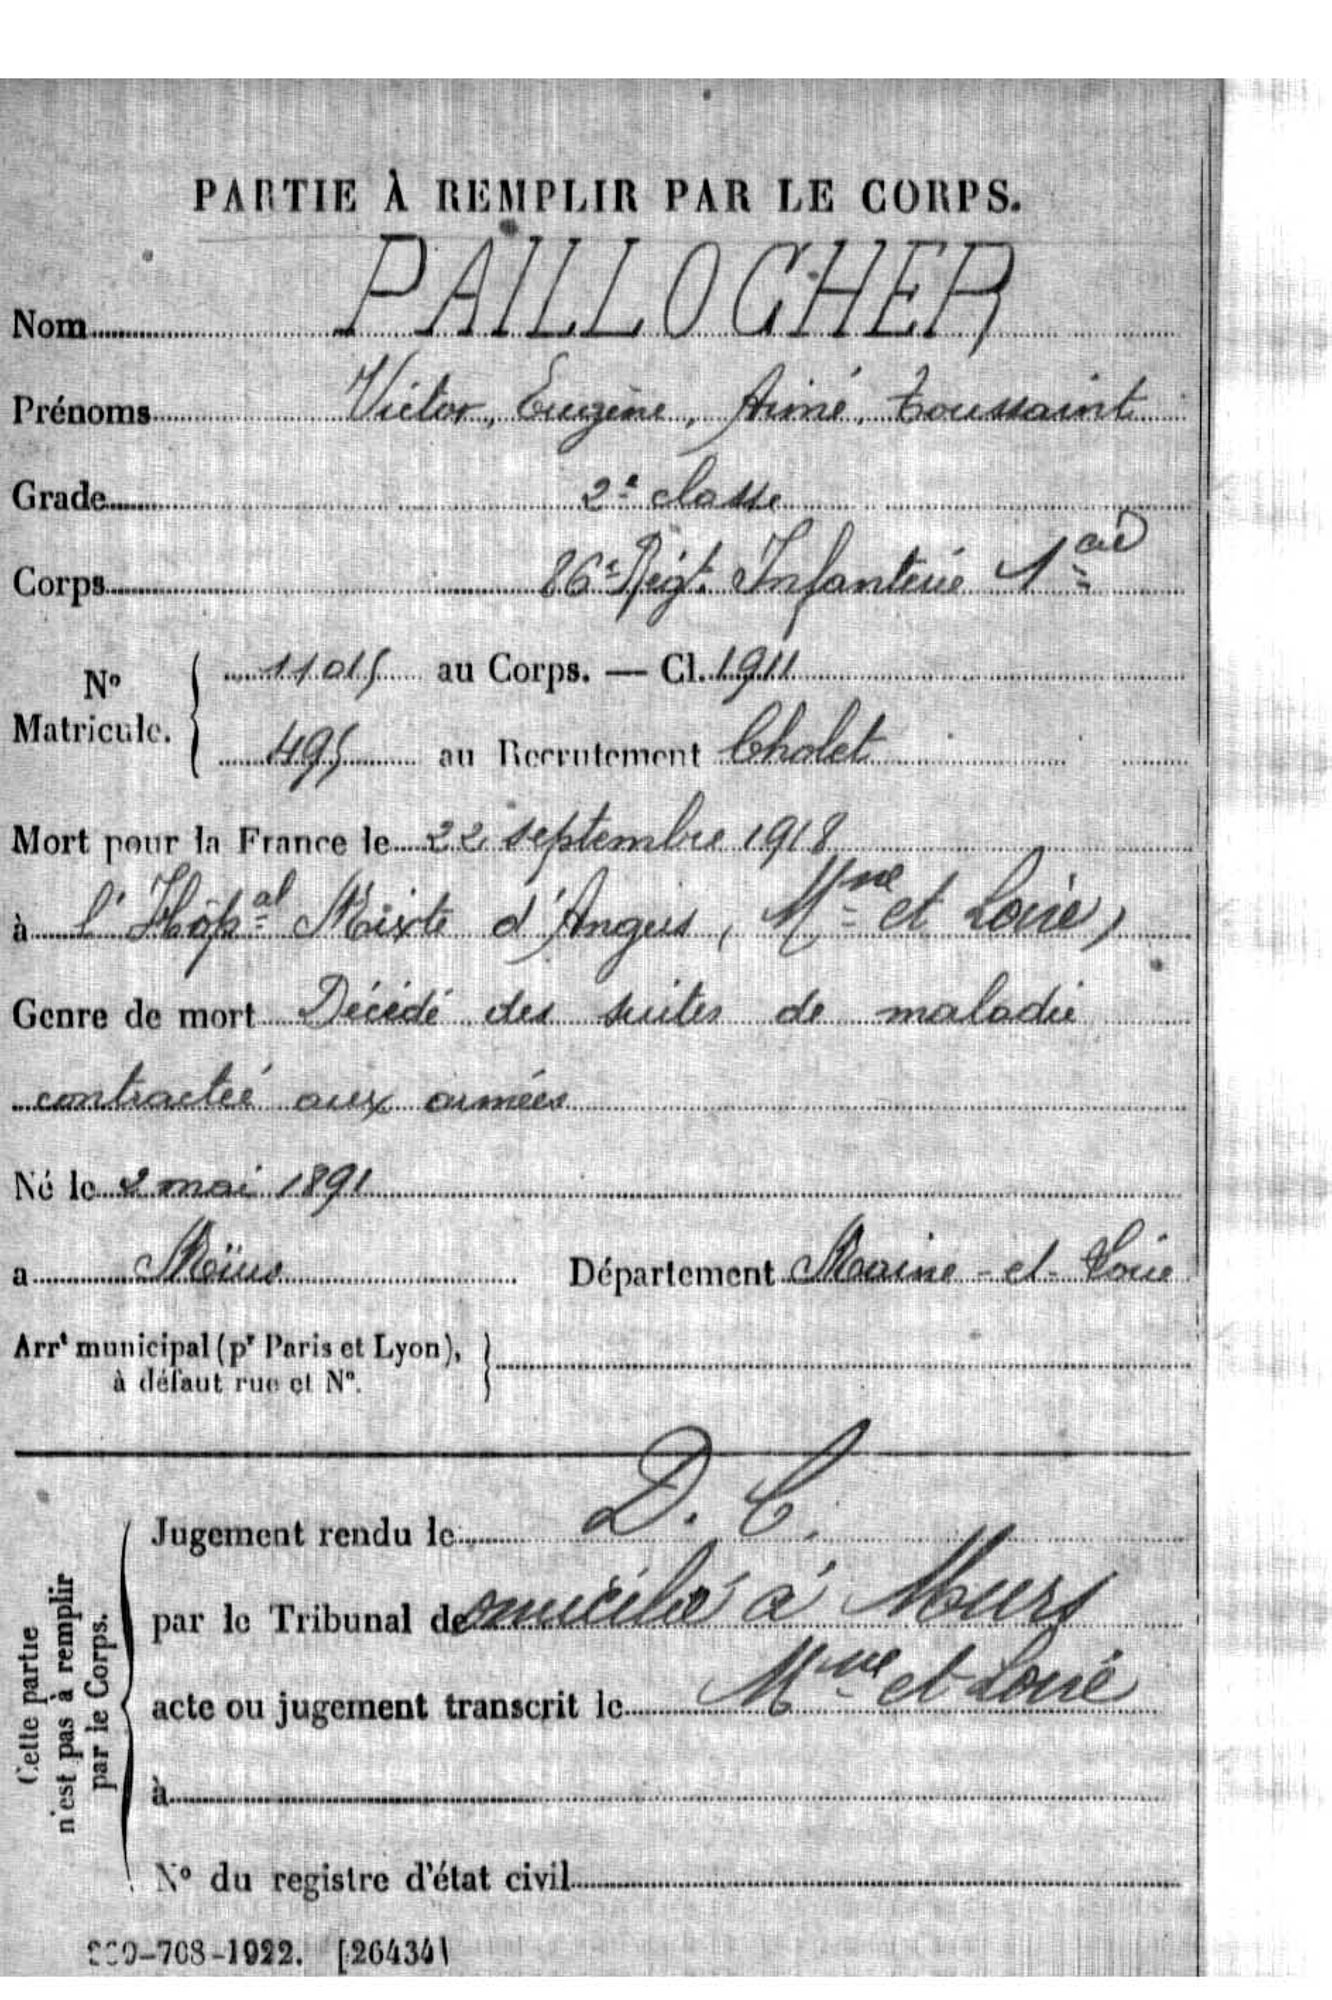 PARTIE À REMPLIR PAR LE CORPS.
Nom PAILLOCHER
Prénoms Victor, Eugène, Aimé, Toussaint
Grade 2e classe
Corps 86e Régt. Infanterie 1 cie
No Matricule. 11015 au Corps. — Cl. 1911
495 au Recrutement Cholet
Mort pour la France le 22 septembre 1918
à l'Hôpal Mixte d'Angers, Mne et Loire)
Genre de mort Décédé des suites de maladie
contractée aux armées
Né le 2 mai 1891
a Département Maine-et-Loire
Arrt municipal (pr Paris et Lyon),
à défaut rue et No.
Cette partie
n'est pas à remplir
par le Corps.
Jugement rendu le D. C.
par le Tribunal de omicilié à Murs
acte ou jugement transcrit le Mne et Loire
à
No du registre d'état civil
-708-1922. [26434]